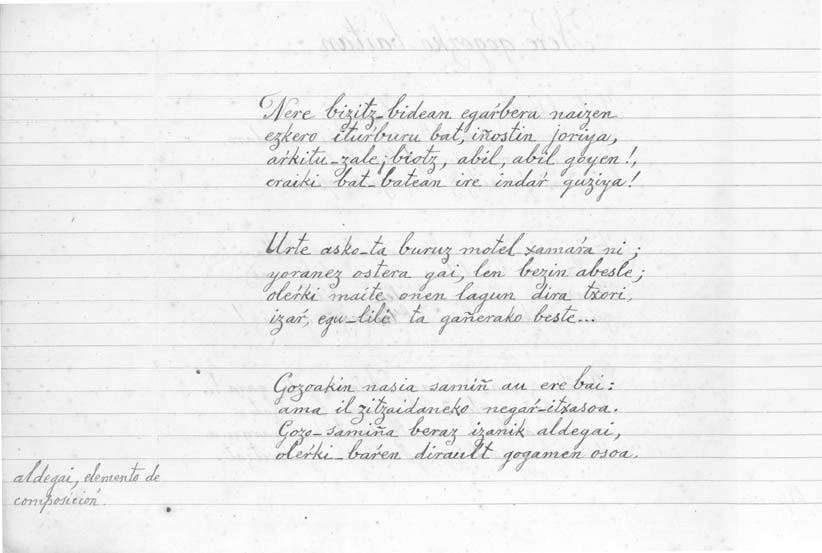 Nere bizitz-bidean egaŕbera naizen
ezkero ituŕburu bat, iñostin joriya,
aŕkitu-zale; biotz, abil, abil goyen!,
eraiki bat-batean ire indaŕ guziya!
Urte asko-ta buruz motel xamaŕa ni;
yoranez ostera gai, len bezin abesle;
oleŕki maite onen lagun dira txori,
izaŕ, egu-lili ta gañerako beste...
Gozoakin nasia samiñ au ere bai:
ama il zitzaidaneko negaŕ-itxasoa.
Gozo-samiña beraz izanik aldegai,
oleŕki-baŕen dirault gogamen osoa.
aldegai, elemento de
composición.